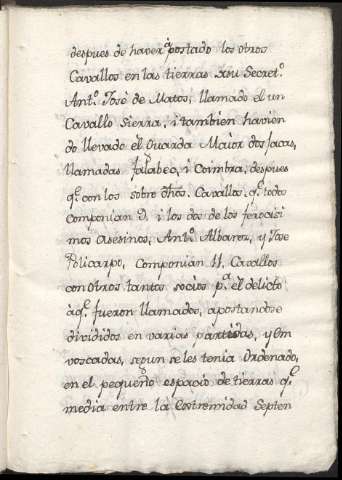 despues de haver apostado los otros
Cavallos en las tierras xsu Secretº.
Antº. Josè de Matos, llamado el un
Cavallo Sierra, i tambien havien
do llevado el Guarda Maior dos Jacas,
llamadas Falabeo, i Coimbra, despues
q̃. con los sobre dhos. Cavallos, q̃. todos
componian 9. i los dos de los ferocisi
mos Asesinos, Antº. Albarez, y Jose
Policarpo, Componian 11. Cavallos
con otros tantos socios pª. el delicto
àq̃. fueron llamados, apostandose
divididos en varias partidas, y Om
voscadas, segun se les tenia Ordenado,
en el pequeño espacio de tierras q̃.
media entre la Costremidad Septen